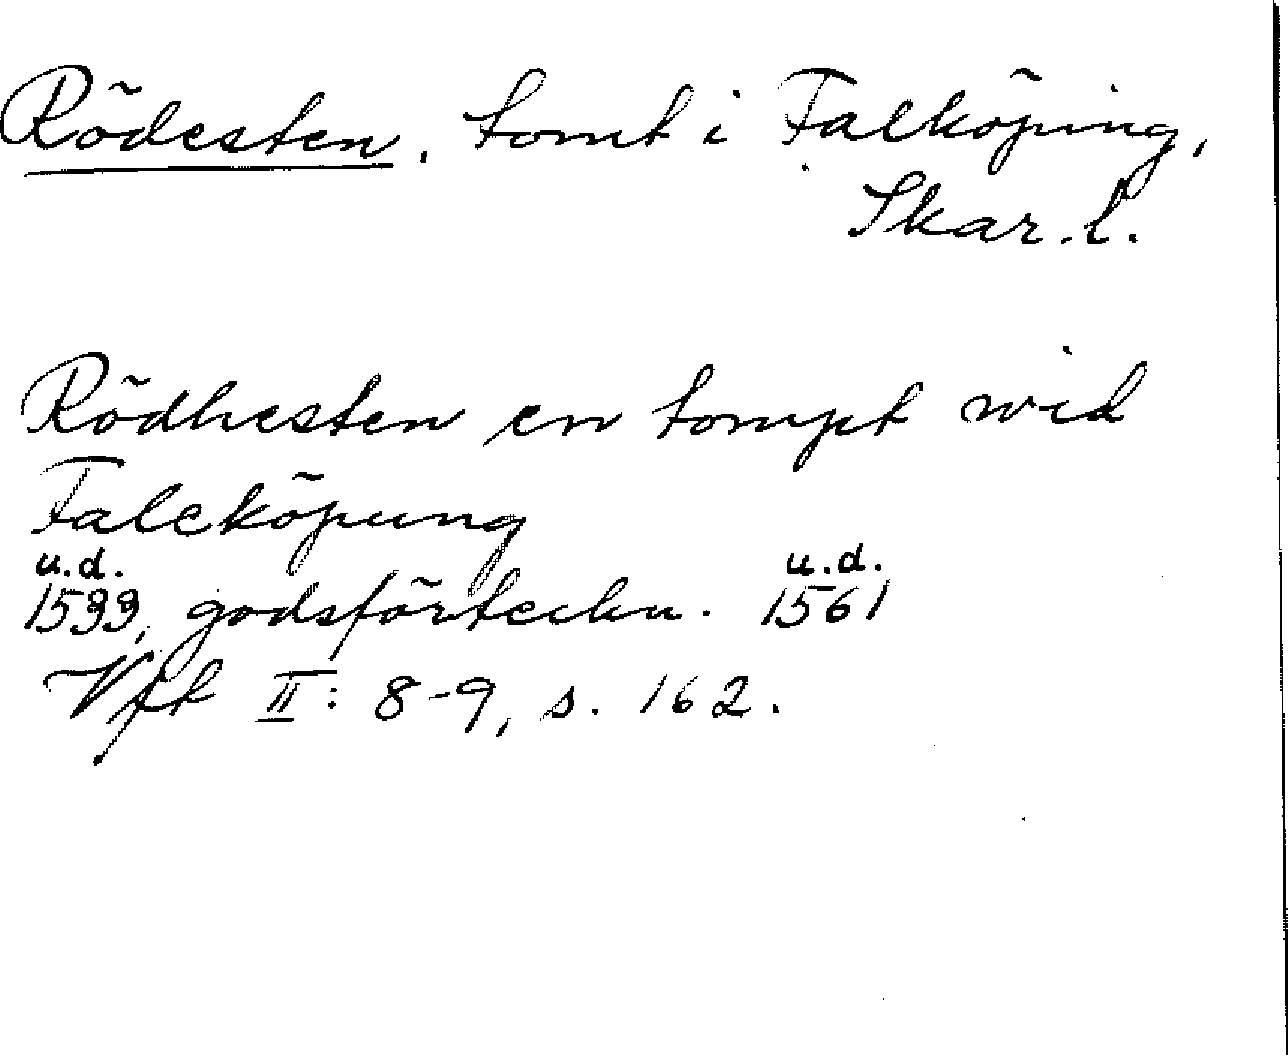 Rödesten, tomt i Falköping,
Skar. l.
Rödhesten en tompt wid
Falcköpung
u.d. u.d.
1599, godsförteckn. 1561
Vft II: 8-9, s. 162.